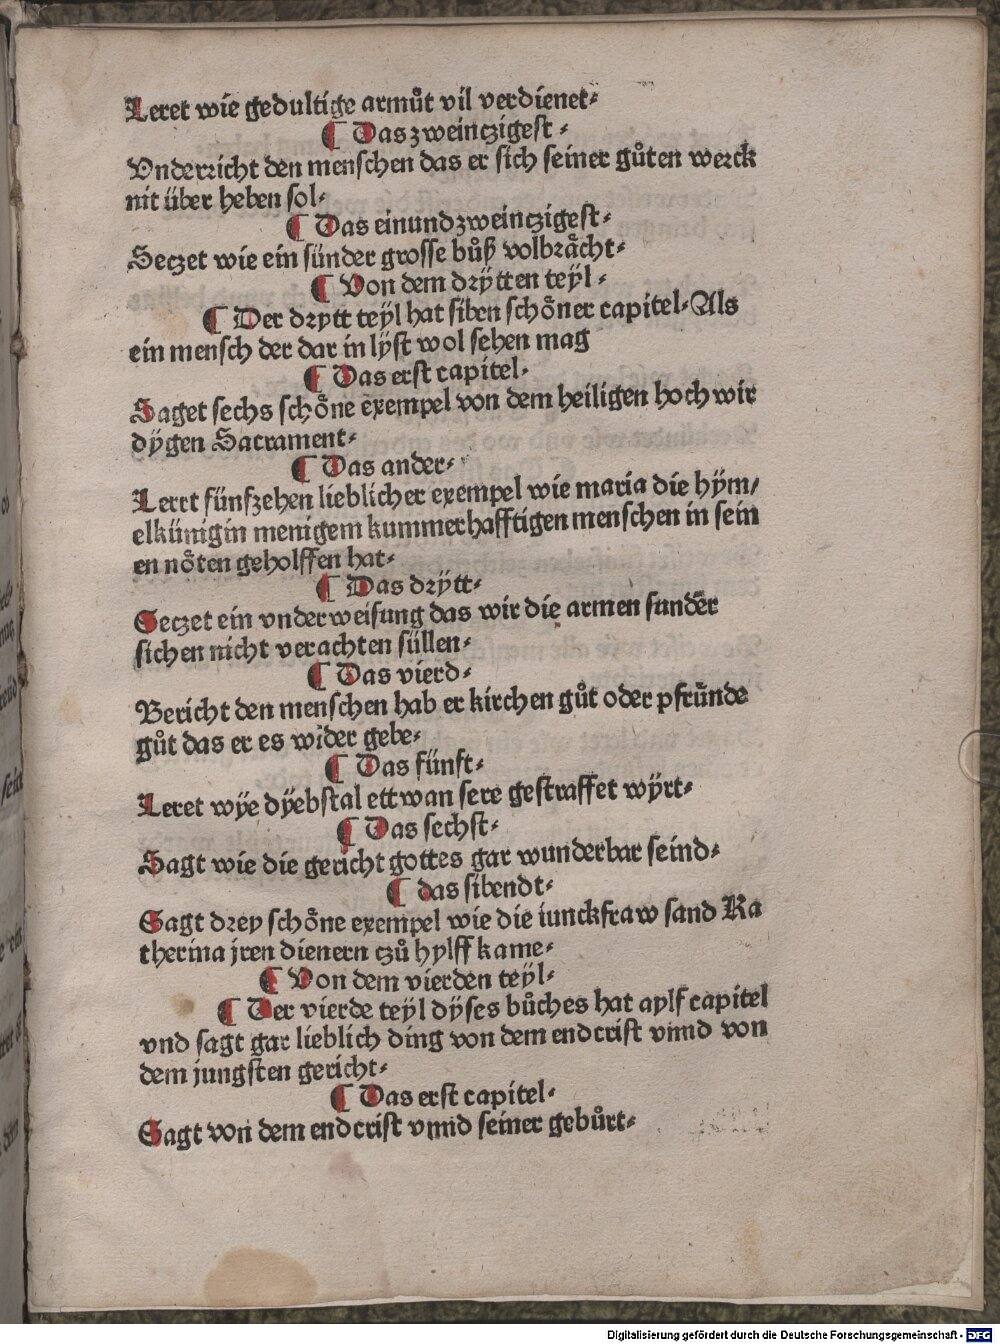 Leret wie gedultige armůt vil verdienet⸗
¶ Das zweinczigest⸗
Vnderricht den menschen das er sich seiner gůten werck
nit über heben sol⸗
¶ Das einundzweinczigest⸗
Seczet wie ein sünder grosse bůß volbrächt⸗
¶ Von dem drÿtten teÿl⸗
¶ Der drytt teÿl hat siben schöner capitel⸗ Als
ein mensch der dar in lÿst wol sehen mag
¶ Das erst capitel⸗
Saget sechs schöne exempel von dem heiligen hoch wir
dÿgen Sacrament⸗
¶ Das ander⸗
Leret fünfzehen lieblicher exempel wie maria die hÿm/
elkünigin menigem kummerhafftigen menschen in sein
en nöten geholffen hat⸗
¶ Das drÿtt⸗
Seczet ein vnderweisung das wir die armen sunder
sichen nicht verachten süllen⸗
¶ Das vierd⸗
Bericht den menschen hab er kirchen gůt oder pfründe
gůt das er es wider gebe⸗
¶ Das fünft⸗
Leret wÿe dÿebstal ettwan sere gestraffet wÿrt⸗
¶ Das sechst⸗
Sagt wie die gericht gottes gar wunderbar seind⸗
¶ das sibendt⸗
Sagt drey schöne exempel wie die iunckfraw sand Ka
therina jren dienern czů hylff kame⸗
¶ Von dem vierden teÿl⸗
¶ Der vierde teÿl dÿses bůches hat aylf capitel
vnd sagt gar lieblich ding von dem endcrist vnnd von
dem jungsten gericht⸗
¶ Das erst capitel⸗
Sagt von dem endcrist vnnd seiner gebůrt⸗
Digitalisierung gefördert durch die Deutsche Forschungsgemeinschaft - DFG